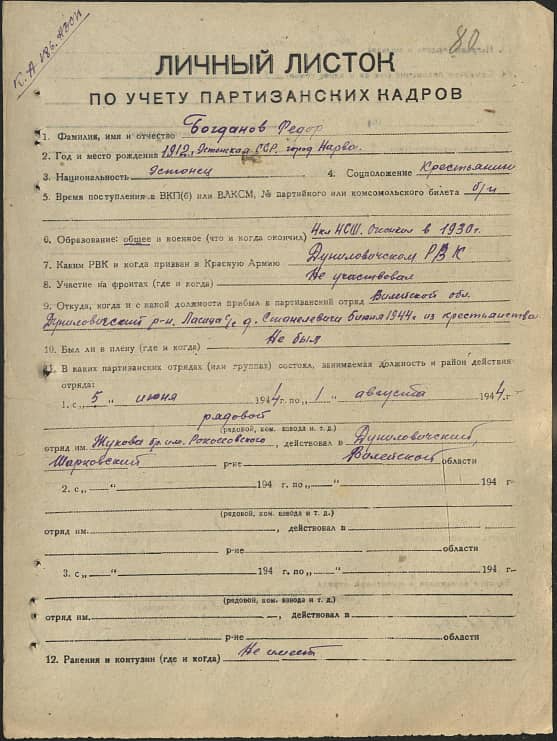 80
ЛИЧНЫЙ ЛИСТОК
ПО УЧЕТУ ПАРТИЗАНСКИХ КАДРОВ
1. Фамилия, имя и отчество Богданов Федор
2. Год и место рождения 1912г. Эстонская ССР. город Нарва.
3. Национальность Эстонец 4. Соцположение Крестьянин
5. Время поступления в ВКП(б) или ВЛКСМ, № партийного или комсомольского билета б/п
6. Образование: общее и военное (что и когда окончил) 4кл НСШ. Окончил в 1930г.
7. Каким РВК и когда призван в Красную Армию Дуниловичском РВК
8. Участие на фронтах (где и когда) Не участвовал
9. Откуда, когда и с какой должности прибыл в партизанский отряд Вилейской обл.
Дуниловичский р-н. с/с д. Станелевичи 5 июня 1944г из крестьянства
10. Был ли в плену (где и когда) Не был
11. В каких партизанских отрядах (или группах) состоял, занимаемая должность и район действия
отряда:
1. с „ 5 “ июня 1944 г. по „ 1 “ августа 1944 г.
рядовой
(рядовой, ком. взвода и т. д.)
отряд им. Жукова бр. им. Рокоссовского, действовал в Дуниловичский,
Шарковский р-не Вилейской области
2. с „ “ 194 г. по „ “ 194 г.
(рядовой, ком. взвода и т. д.)
отряд им. , действовал в
р-не области
3. с „ “ 194 г. по „ “ 194 г.
(рядовой, ком. взвода и т. д.)
отряд им. , действовал в
р-не области
12. Ранения и контузии (где и когда) Не имеет